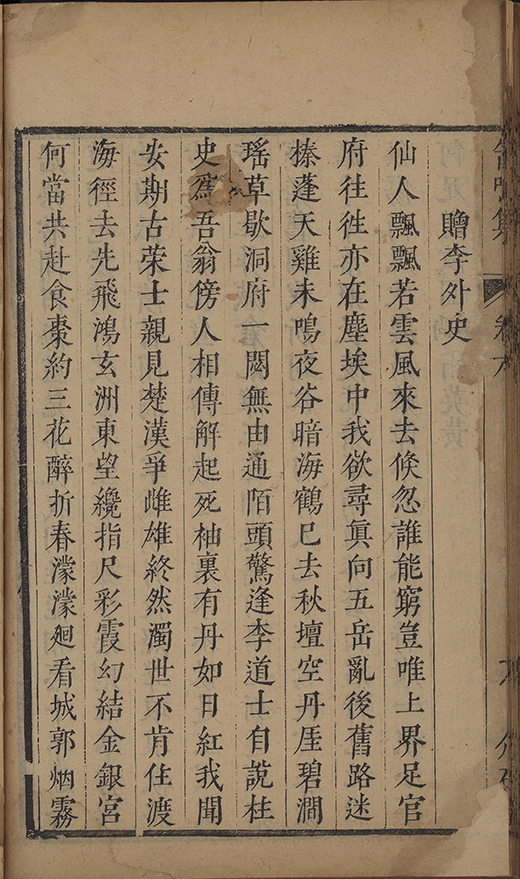 鳴集 卷六
贈李外史
仙人飄飄若雲風來去倏忽誰能窮豈唯上界足官
府往徃亦在塵埃中我欲尋眞向五岳亂後舊路迷
榛蓬天雞未鳴夜谷暗海鶴巳去秋壇空丹厓碧澗
瑶草歇洞府一閟無由通陌頭驚逢李道士自說柱
史爲吾翁傍人相傳解起死袖裏有丹如日紅我聞
安期古荣士親見楚漢爭雌雄終然濁世不肯住渡
海徑去先飛鴻玄洲東望纔指尺彩霞幻結金銀宮
何當共赴食棗約三花醉折春濛濛廻看城郭烟霧